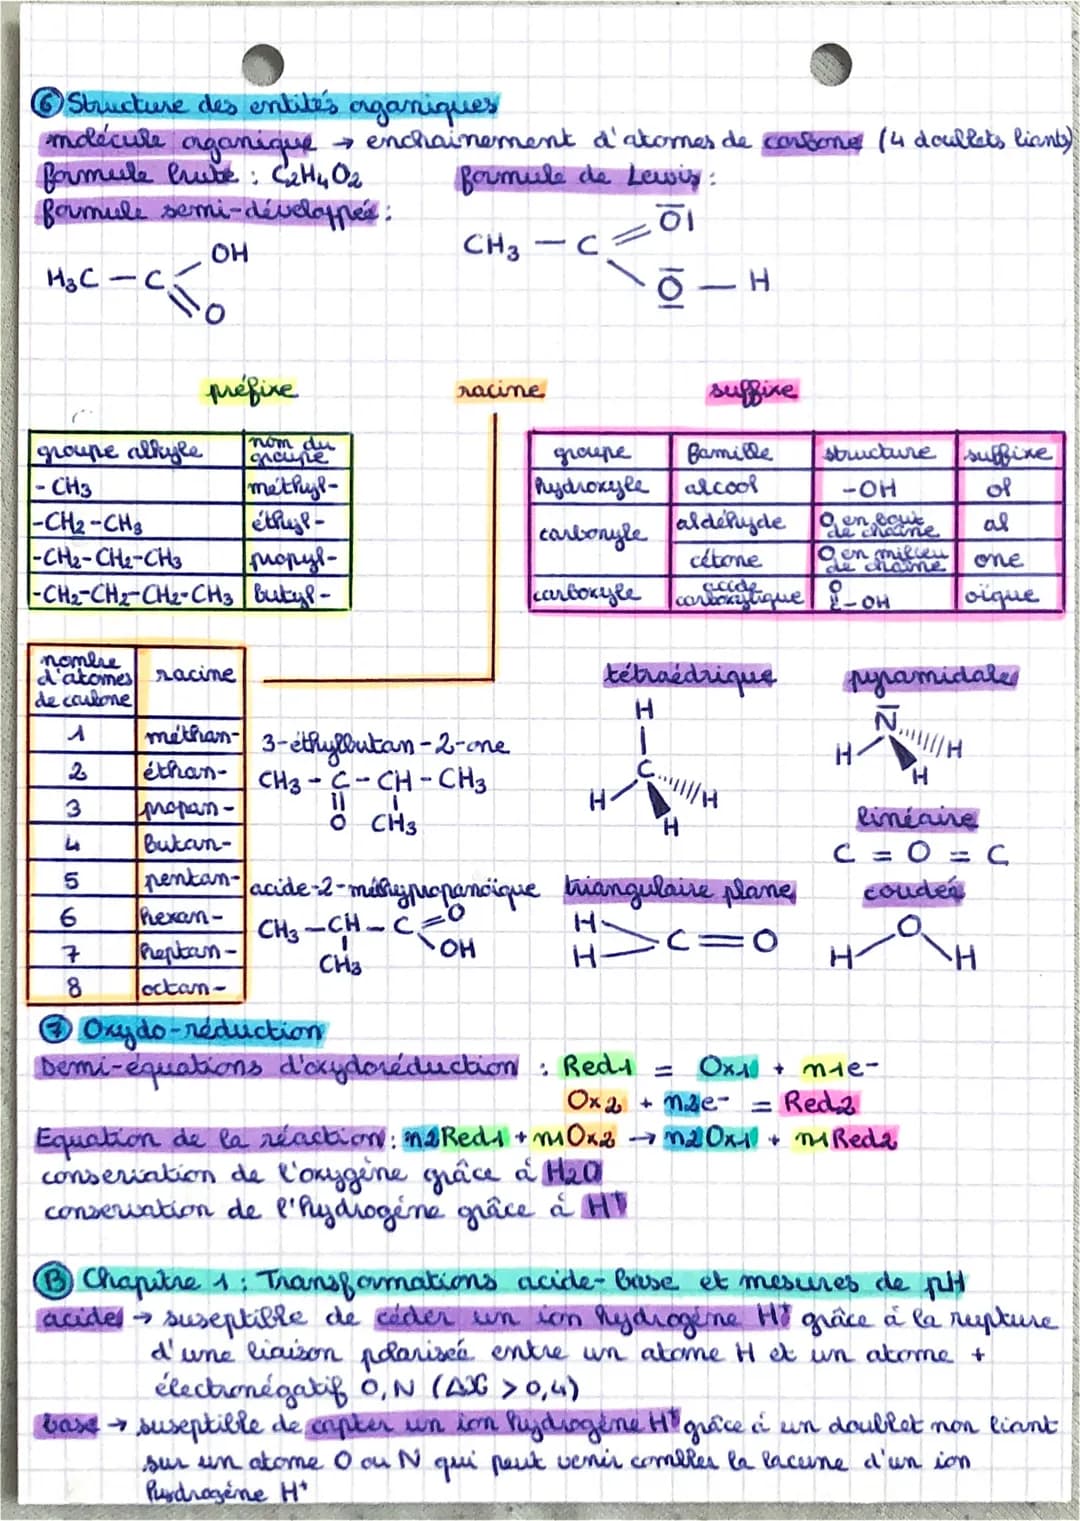 ⑥ Structure des entités organiques
molécule organique → enchainement d'atomes de carbone (4 doublets liants)
formule brute : C2H4O2
formule de Lewis :
formule semi-développée :
H3C - C OH O
CH3 - C O O - H
préfixe racine suffixe
groupe alkyle nom du groupe
- CH3 méthyl-
-CH2-CH3 éthyl-
-CH2-CH2-CH3 propyl-
-CH2-CH2-CH2-CH3 butyl-
groupe famille structure suffixe
hydroxyle alcool -OH ol
carbonyle aldéhyde O en bout de chaîne al
cétone O en milieu de chaîne one
carboxyle acide carboxylique O C-OH oïque
nombre d'atomes de carbone racine
1 méthan-
2 éthan-
3 propan-
4 butan-
5 pentan-
6 hexan-
7 heptan-
8 octan-
3-éthylbutan-2-one
CH3 - C - CH - CH3
O CH3
acide-2-méthypropanoïque
CH3 - CH - C = O
CH3 OH
tétraédrique
H
C
H H
H
pyramidale
N
H H
H
linéaire
C = O = C
triangulaire plane
H
H C = O
coudée
O
H H
⑦ Oxydo-réduction
Demi-équations d'oxydoréduction : Red1 = Ox1 + n1e-
Ox2 + n2e- = Red2
Equation de la réaction : n2Red1 + n1Ox2 → n2Ox1 + n1Red2
conservation de l'oxygène grâce à H2O
conservation de l'hydrogène grâce à H+
Ⓑ Chapitre 1 : Transformations acide-base et mesures de pH
acide → suseptible de céder un ion hydrogène H+ grâce à la rupture
d'une liaison polarisée entre un atome H et un atome +
électronégatif O, N (Δχ > 0,4)
base → suseptible de capter un ion hydrogène H+ grâce à un doublet non liant
sur un atome O ou N qui peut venir combler la lacune d'un ion
hydrogène H+